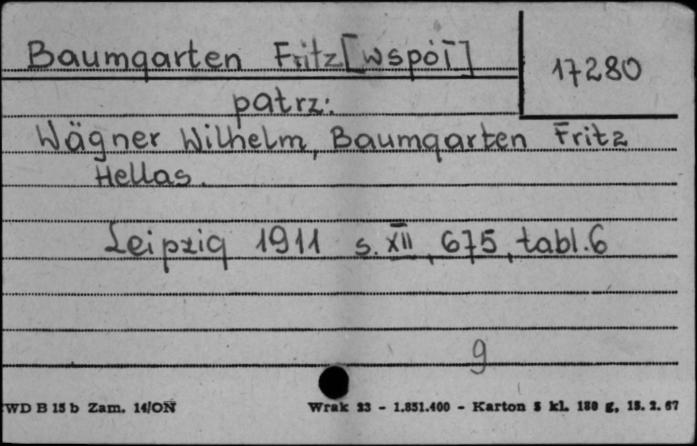 Baumgarten Fritz [współ]
17280
patrz:
Wägner Wilhelm, Baumgarten Fritz
Hellas.
Leipzig 1911 s. XII, 675, tabl. 6
9
WD B 15 b Zam. 14/ON Wrak 23 - 1.851.400 - Karton 5 kl. 180 g, 18. 2. 67